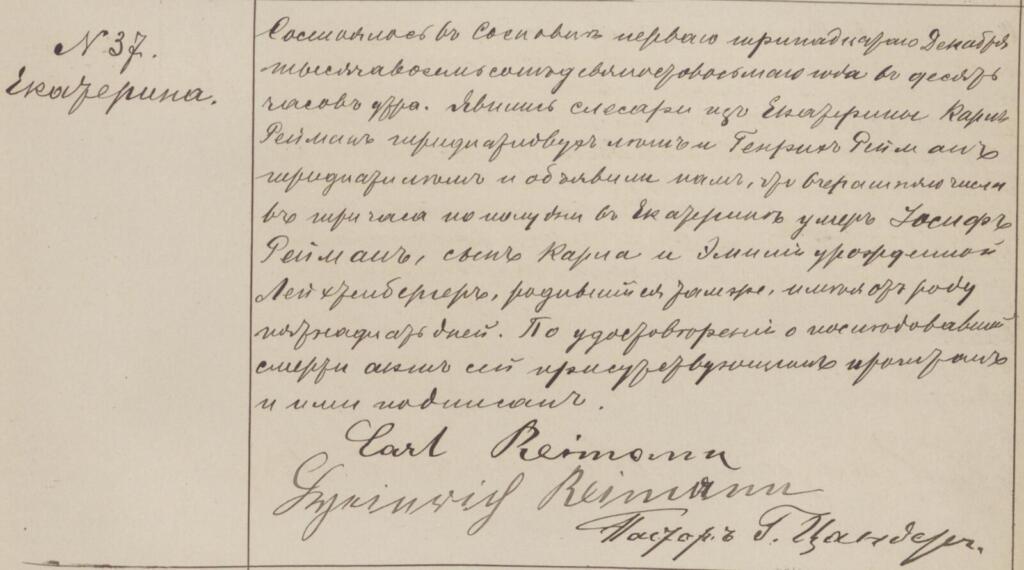 N 37.
Екатерина.
Состоялось въ Сосновицѣ перваго тринадцатаго Декабря
тысяча восемьсотъ девяностовосьмаго года въ десять
часовъ утра. Явились слесари изъ Екатерины Карлъ
Рейманъ тридцатидвухъ лѣтъ и Генрихъ Рейманъ
тридцати лѣтъ и объявили намъ, что вчерашняго числа
въ три часа по полудни въ Екатеринѣ умеръ Іосифъ
Рейманъ, сынъ Карла и Эмиліи урожденной
Лейхтенбергеръ, родившійся тамже, имѣя отъ роду
пятнадцать дней. По удостовѣреніи о послѣдовавшей
смерти актъ сей присутствующимъ прочтенъ
и ими подписанъ.
Carl Reimann
Heinrich Reimann
Пасторъ Г. Цандеръ.